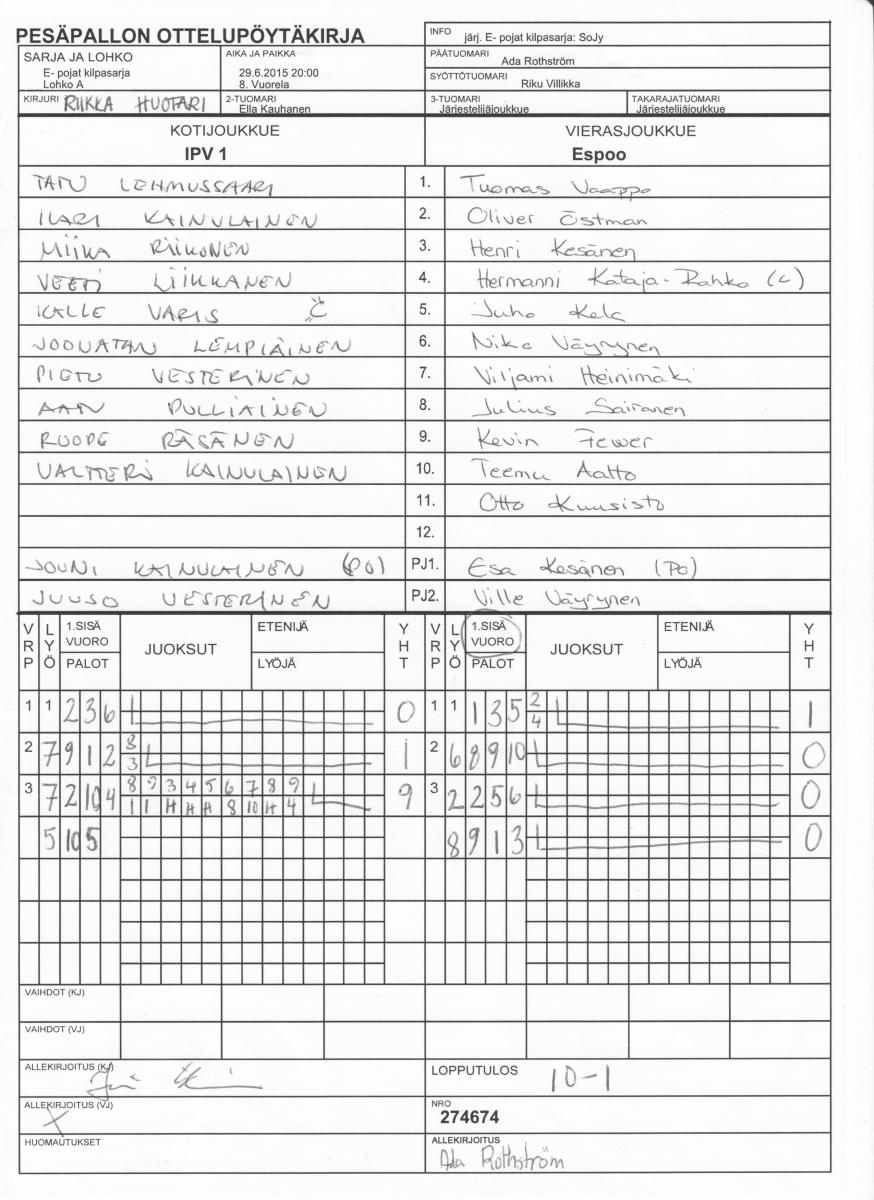 PESÄPALLON OTTELUPÖYTÄKIRJA
INFO järj. E- pojat kilpasarja: SoJy
SARJA JA LOHKO
E- pojat kilpasarja
Lohko A
AIKA JA PAIKKA
29.6.2015 20:00
8. Vuorela
PÄÄTUOMARI Ada Rothström
SYÖTTÖTUOMARI Riku Villikka
KIRJURI RIIKKA HUOTARI
2-TUOMARI
Ella Kauhanen
3-TUOMARI
Järjestelijäjoukkue
TAKARAJATUOMARI
Järjestelijäjoukkue
KOTIJOUKKUE
IPV 1
VIERASJOUKKUE
Espoo
TATU LEHMUSSAARI 1. Tuomas Vaappo
ILARI KAINULAINEN 2. Oliver Östman
MIIKA RÄIKÖNEN 3. Henri Kesänen
VEETI LIIKKANEN 4. Hermanni Kataja-Rahko (C)
KALLE VARIS C 5. Juho Kela
JOONATAN LEMPIÄINEN 6. Niko Väyrynen
PIETU VESTERINEN 7. Viljami Heinimäki
AATU PULLIAINEN 8. Julius Sairanen
ROOPE RÄSÄNEN 9. Kevin Fewer
VALTTERI KAINULAINEN 10. Teemu Aalto
11. Otto Kuusisto
12.
JOUNI KAINULAINEN (PO) PJ1. Esa Kesänen (Po)
JUUSO VESTERINEN PJ2. Ville Väyrynen
VRP LYÖ 1.SISÄ VUORO PALOT JUOKSUT ETENIJÄ LYÖJÄ YHT VRP LYÖ 1.SISÄ VUORO PALOT JUOKSUT ETENIJÄ LYÖJÄ YHT
1 1 2 3 6 0 1 1 1 3 5 2/4 1
2 7 9 1 2 8/3 1 2 6 8 9 10 0
3 7 2 10 4 8/1 9/1 3/H 4/H 5/H 6/8 7/10 8/H 9/4 9 3 2 2 5 6 0
5 10 5 8 9 1 3 0
VAIHDOT (KJ)
VAIHDOT (VJ)
ALLEKIRJOITUS (KJ)
LOPPUTULOS 10-1
ALLEKIRJOITUS (VJ) X
NRO
274674
HUOMAUTUKSET
ALLEKIRJOITUS
Ada Rothström